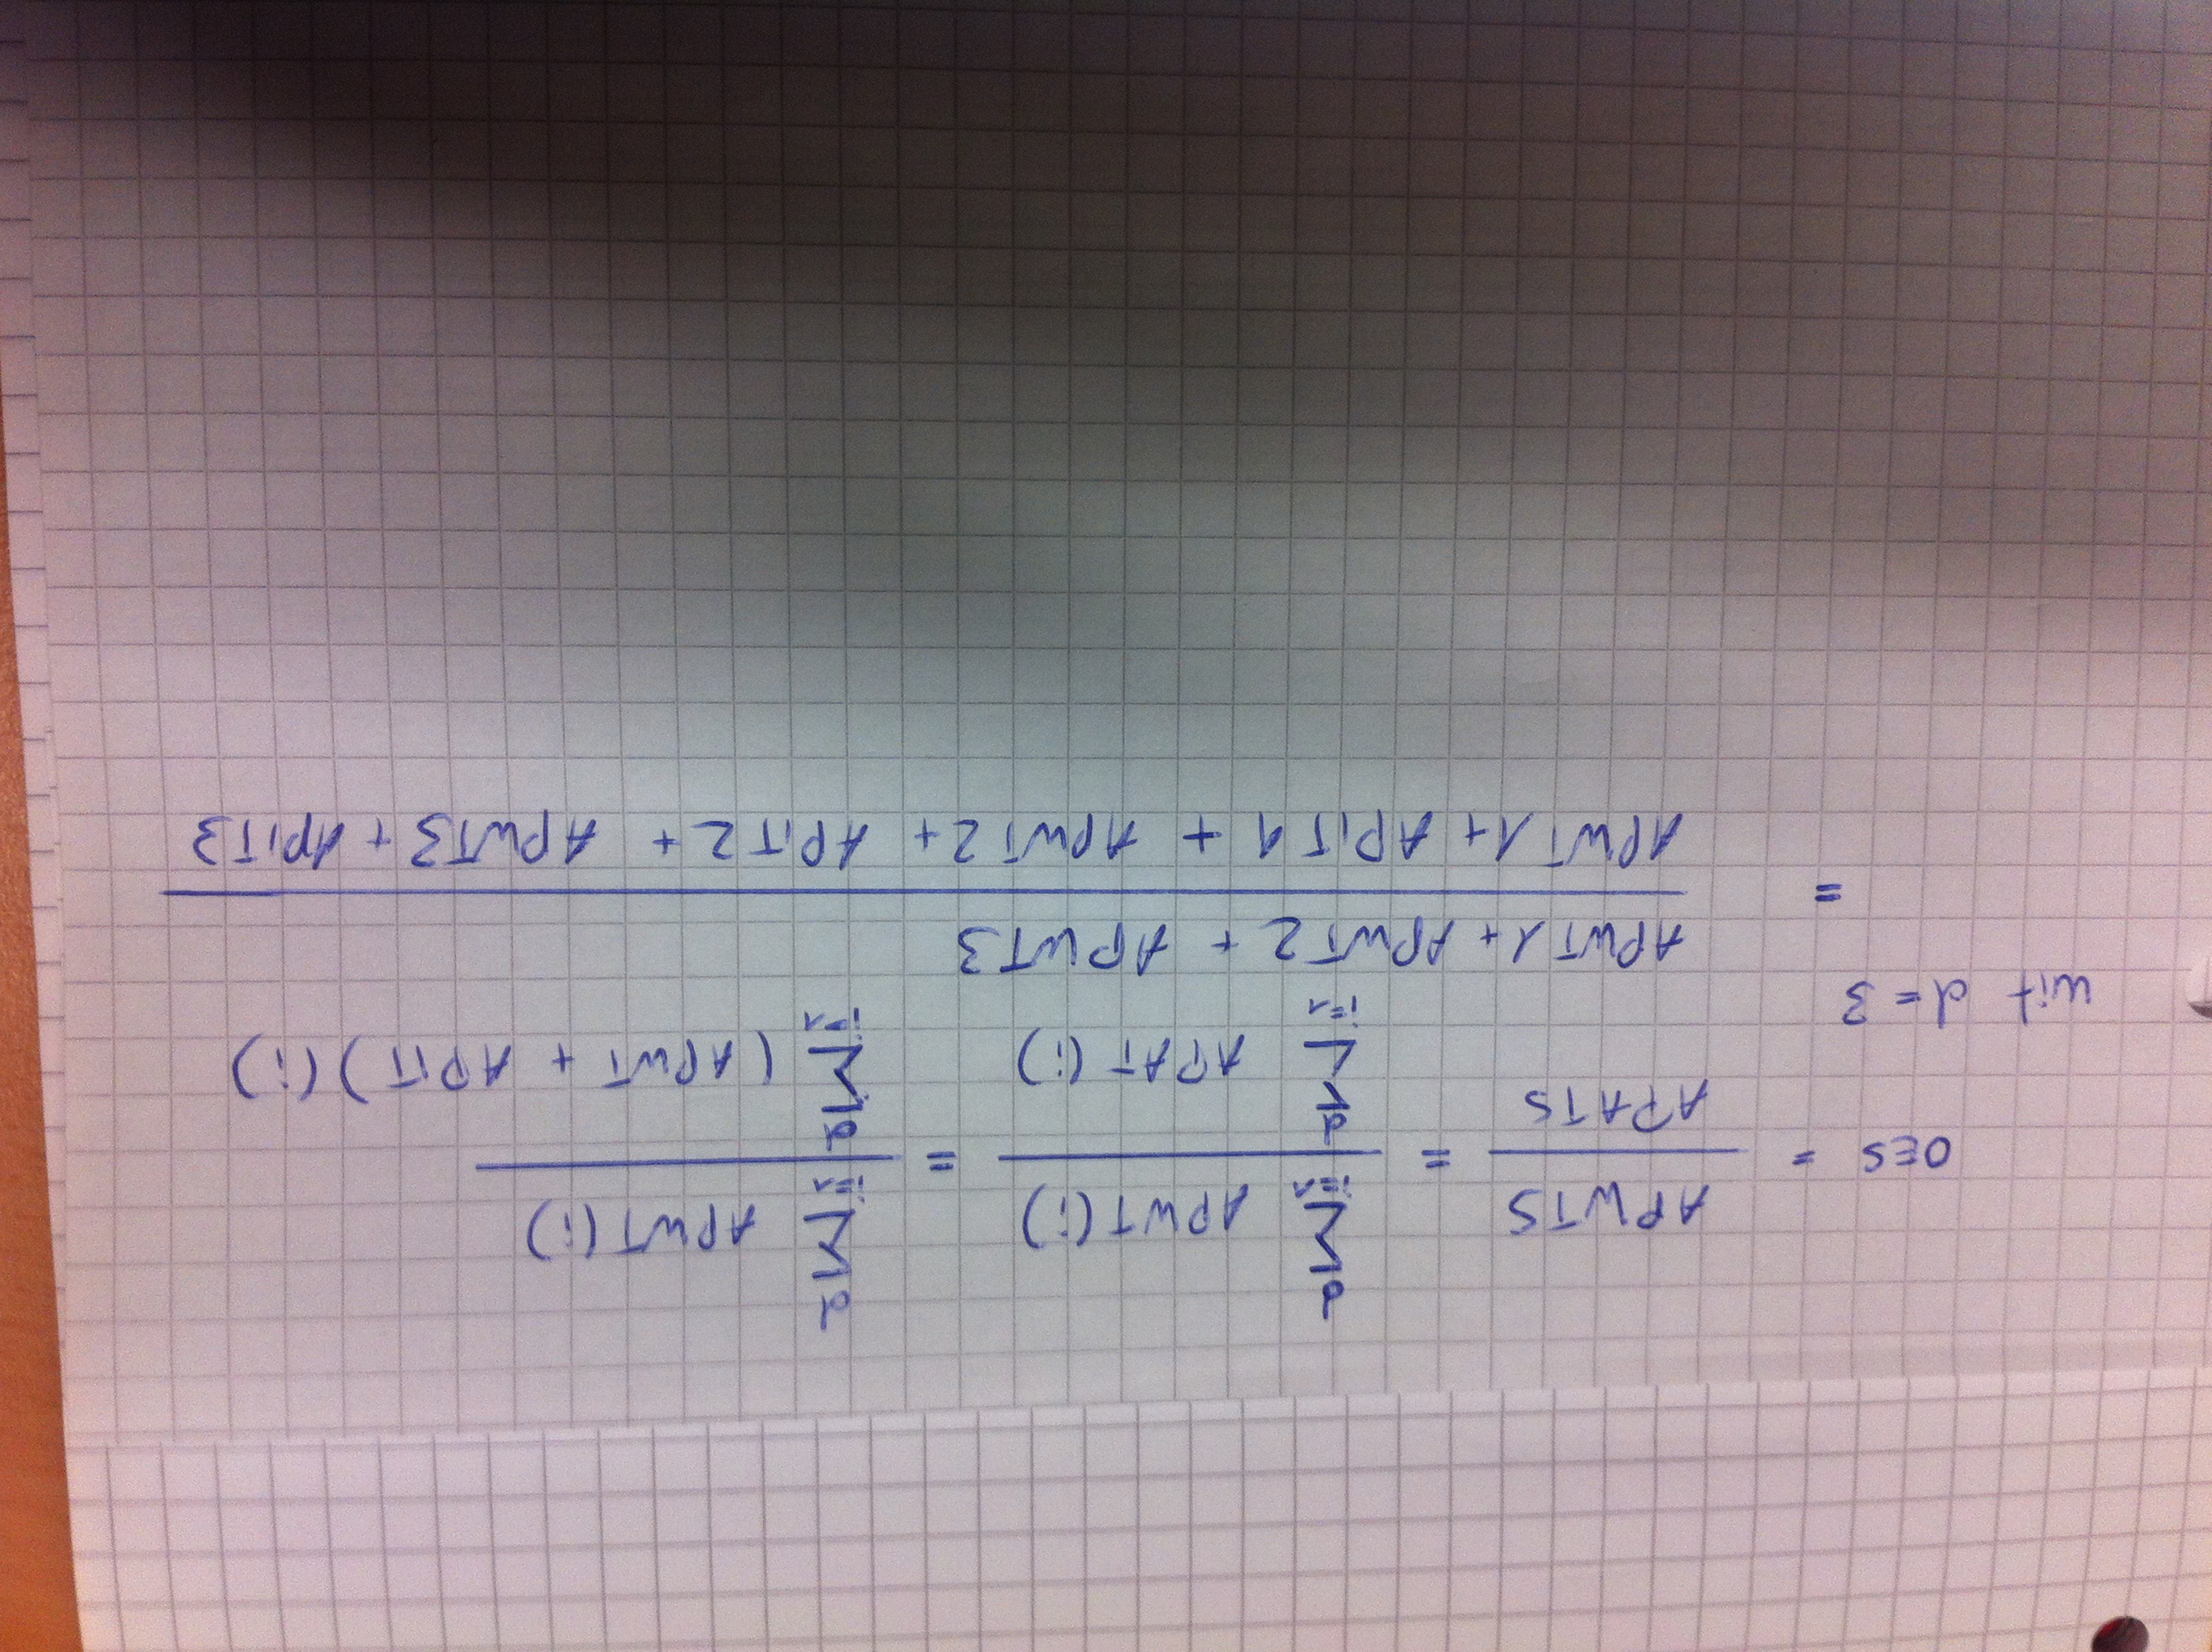 OES = APWTS / APATS = d Σ i=1 APWT(i) / d Σ i=1 APAT(i) = d Σ i=1 APWT(i) / d Σ i=1 (APWT + APIT)(i)
wit d = 3
= APWT1 + APWT2 + APWT3 / APWT1 + APIT1 + APWT2 + APIT2 + APWT3 + APIT3